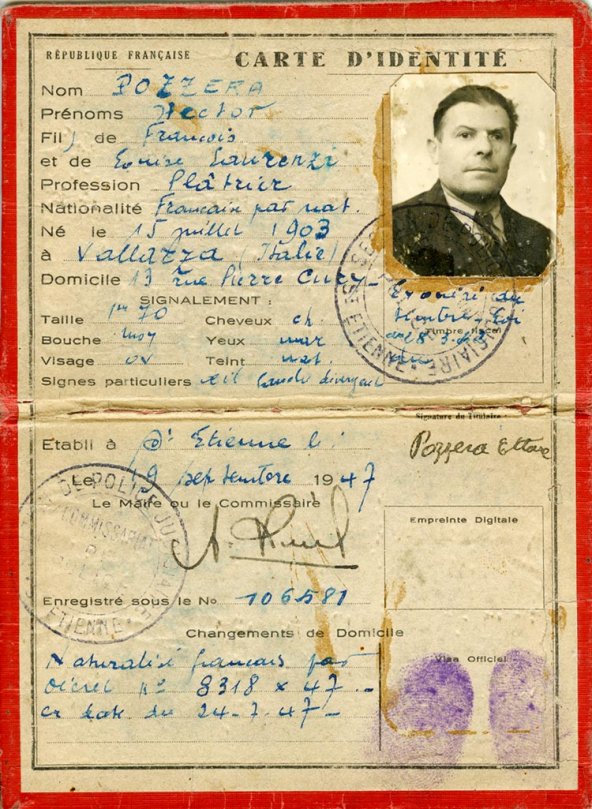 RÉPUBLIQUE FRANÇAISE
CARTE D'IDENTITÉ
Nom POZZERA
Prénoms Hector
Fils de François
et de Louise Laurenzi
Profession Plâtrier
Nationalité Français par nat.
Né le 15 juillet 1903
à Vallarza (Italie)
Domicile 13 rue Pierre Curie
SIGNALEMENT :
Taille 1m 70 Cheveux ch.
Bouche moy Yeux mar
Visage ov Teint nat.
Signes particuliers œil gauche divergent
Exonéré du
timbre Loi
du 28.3.
Timbre fiscal
Signature du Titulaire :
Pozzera Ettore
Etabli à St Etienne le
Le 19 septembre 1947
Le Maire ou le Commissaire
Empreinte Digitale
Enregistré sous le No 106581
Changements de Domicile
Visa Officiel
Naturalisé français par
Décret no 8318 x 47 -
en date du 24-7-47 -
COMMISSARIAT
ETIENNE
ETIENNE